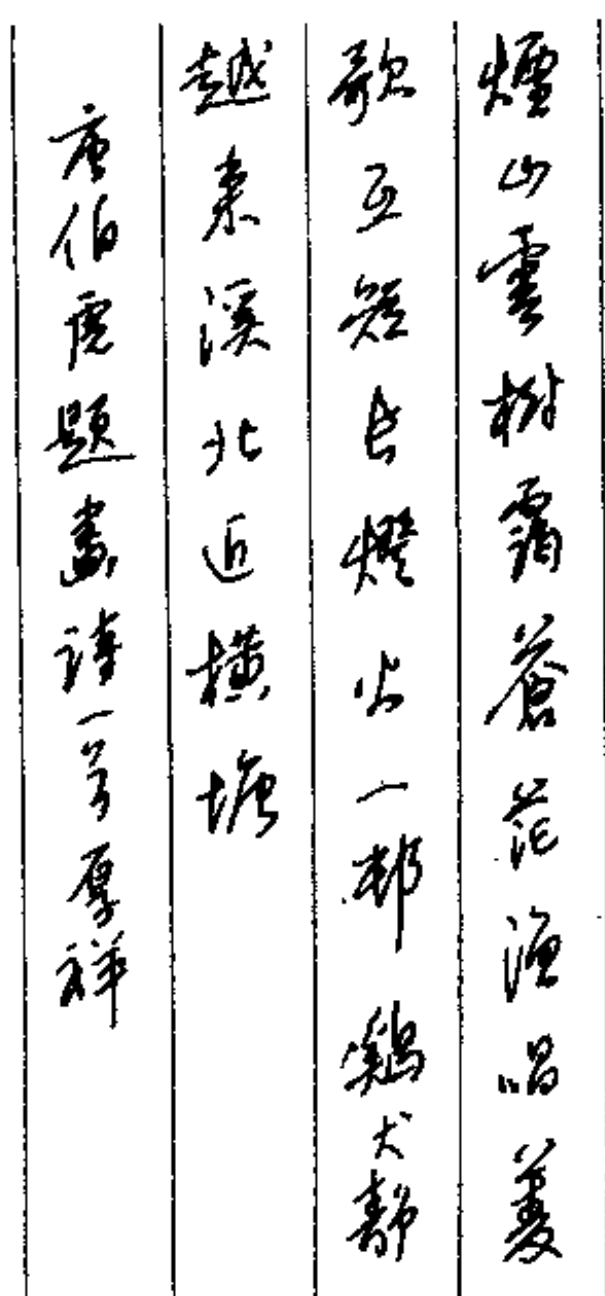 烟山雲樹靄蒼茫漁唱菱
歌互短長燈火一邨鷄犬靜
越來溪北近橫塘
唐伯虎題畫詩一首厚祥